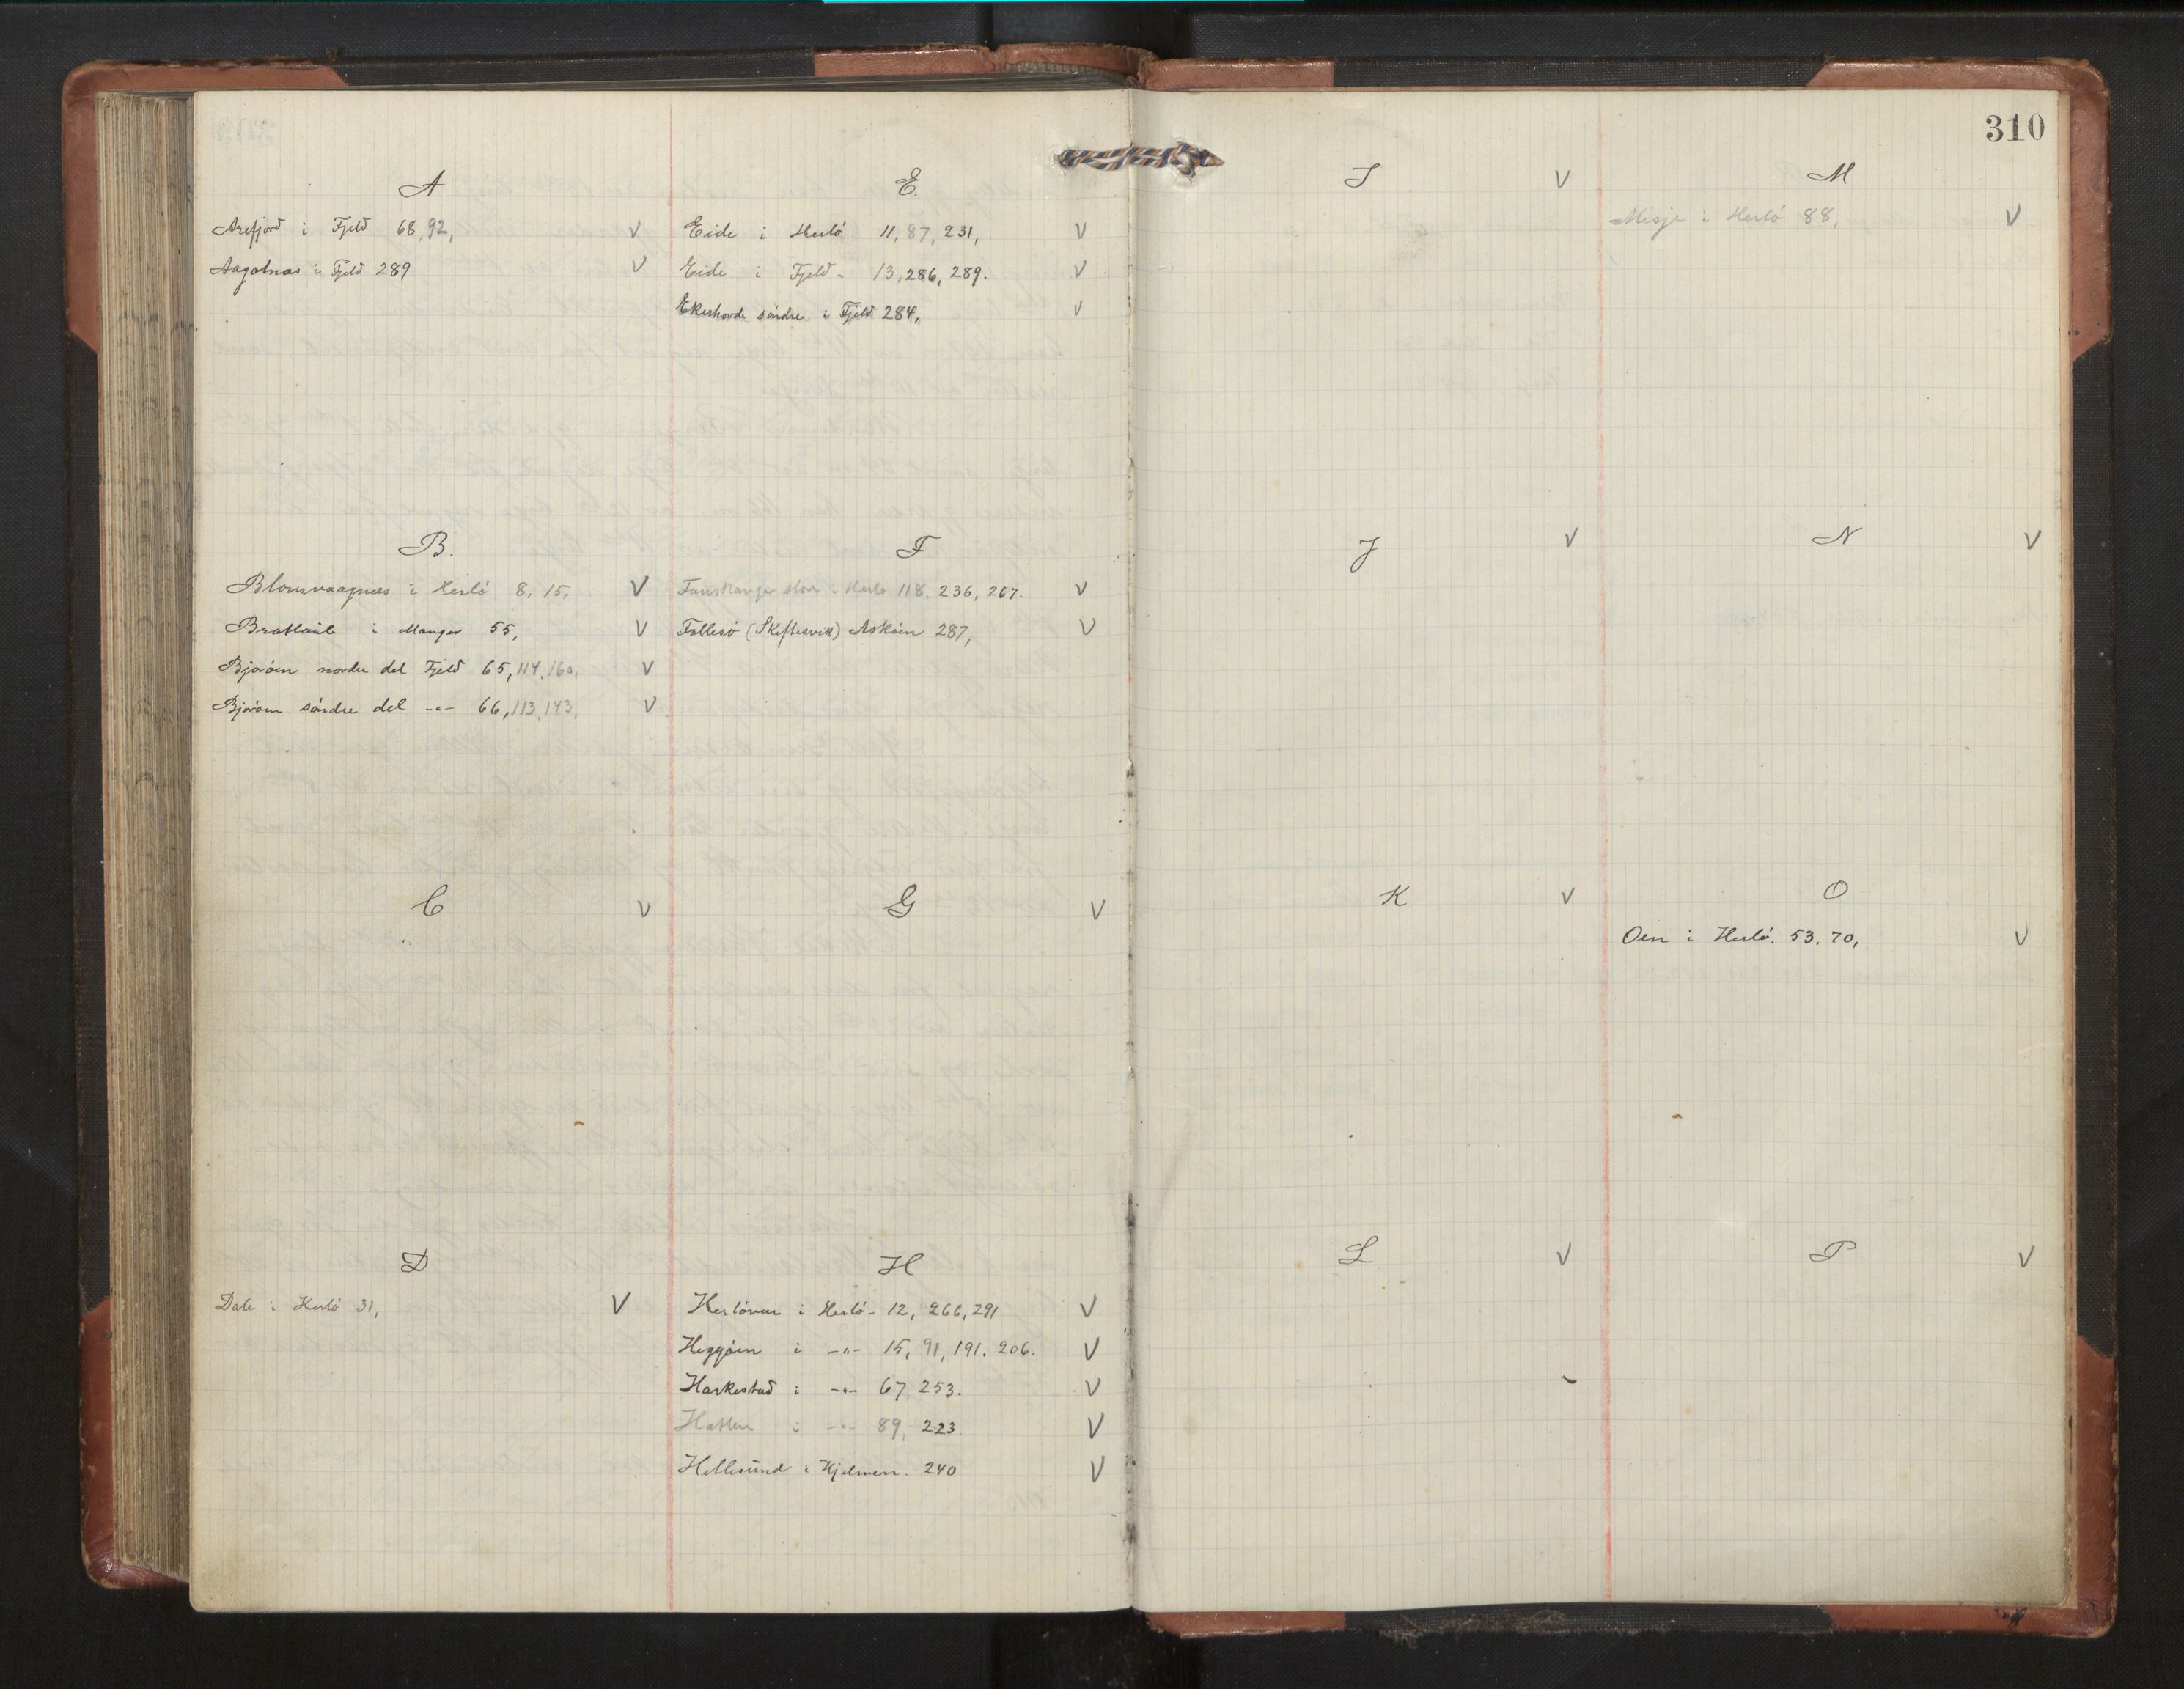 310
A
Arefjord i Fjeld 68, 92, V
Aagotnæs i Fjeld 289 V
B.
Blomvaagnæs i Herlö 8, 15, V
Brattaule i Manger 55, V
Bjoröen nordre del Fjeld 65, 114, 160, V
Bjoröen söndre del -"- 66, 113, 143, V
C V
D
Dale i Herlö 31, V
E.
Eide i Herlö 11, 87, 231, V
Eide i Fjeld - 13, 286, 289. V
Ekerhovde söndre i Fjeld 284, V
F
Fauskanger store i Herlö 118, 236, 267. V
Follesö (Skiftesvik) Asköen 287, V
G V
H
Herlövær i Herlö - 12, 266, 291 V
Heggöen i -"- 15, 91, 191. 206. V
Harkestad i -"- 67, 253. V
Hatten i -"- 89, 223 V
Hellesund i Hjelmen. 240 V
I V
J V
K V
L V
M
Misje i Herlö 88, V
N V
O
Oen i Herlö. 53. 70, V
P V